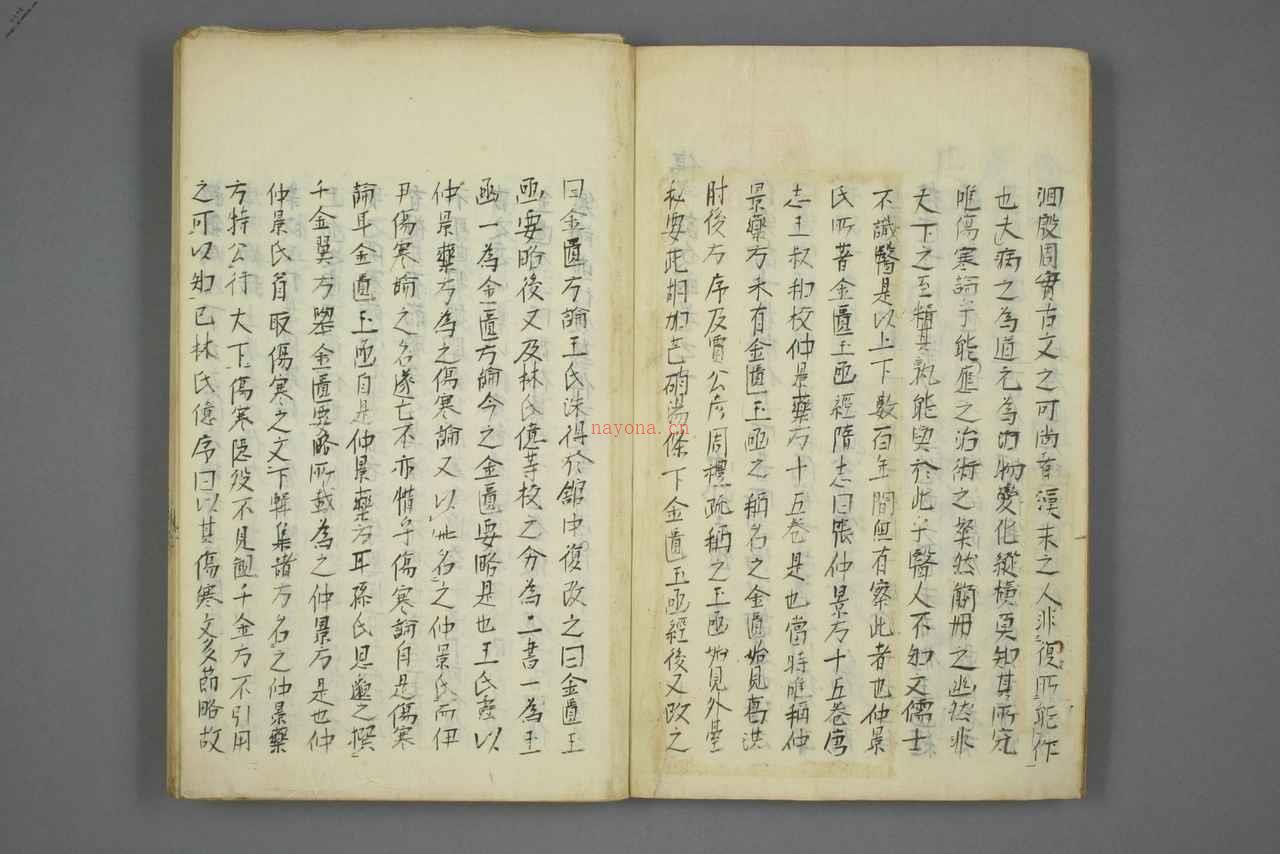 洄殷周實古文之可尚者漢末之人非復所能作
也夫病之為道尤為的物變化縱橫莫知其所究
唯傷寒論乎能應之治術之粲然簡冊之幽然非
天下之至輯其孰能與於此乎醫人不知文儒士
不識醫是以上下數百年間無有察此者也仲景
氏所著金匱玉函經隋志曰張仲景方十五卷唐
志王叔和校仲景藥方十五卷是也當時唯稱仲
景藥方未有金匱玉函之稱名之金匱始見葛洪
肘後方序及賈公彥周禮疏稱之玉函始見外臺
秘要疏胡加芒硝湯條下金匱玉函經後又改之
曰金匱方論王氏洙得於館中復改之曰金匱玉
函要略後又及林氏億等校之分為二書一為玉
函一為金匱方論今之金匱要略是也王氏燾以
仲景藥方為之傷寒論又以此名之仲景氏而伊
尹傷寒論之名遂亡不亦惜乎傷寒論自是傷寒
論耳金匱玉函自是仲景藥方耳孫氏思邈之撰
千金翼方舉金匱要略所載為之仲景方是也仲
仲景氏首取傷寒之文下輯集諸方名之仲景藥
方特公行大下傷寒隱沒不見但千金方不引用
之可以知已林氏億序曰以其傷寒文多節略故
nayona.cn